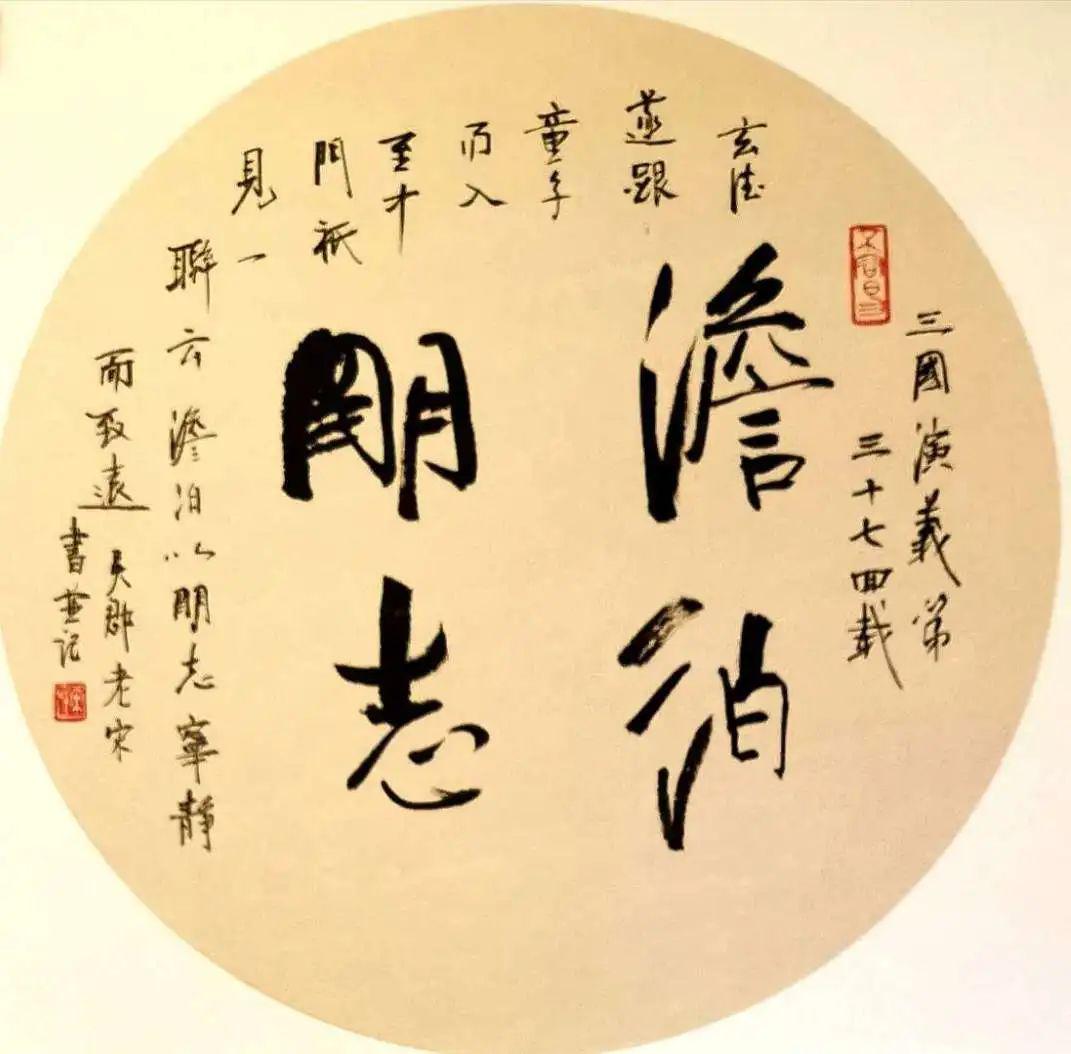 澹泊
明志
三國演義第
三十七回載
玄德
遂跟
童子
而入
至中
門祇
見一
聯云澹泊以明志寧靜
而致遠 吳郡老宋
書並記